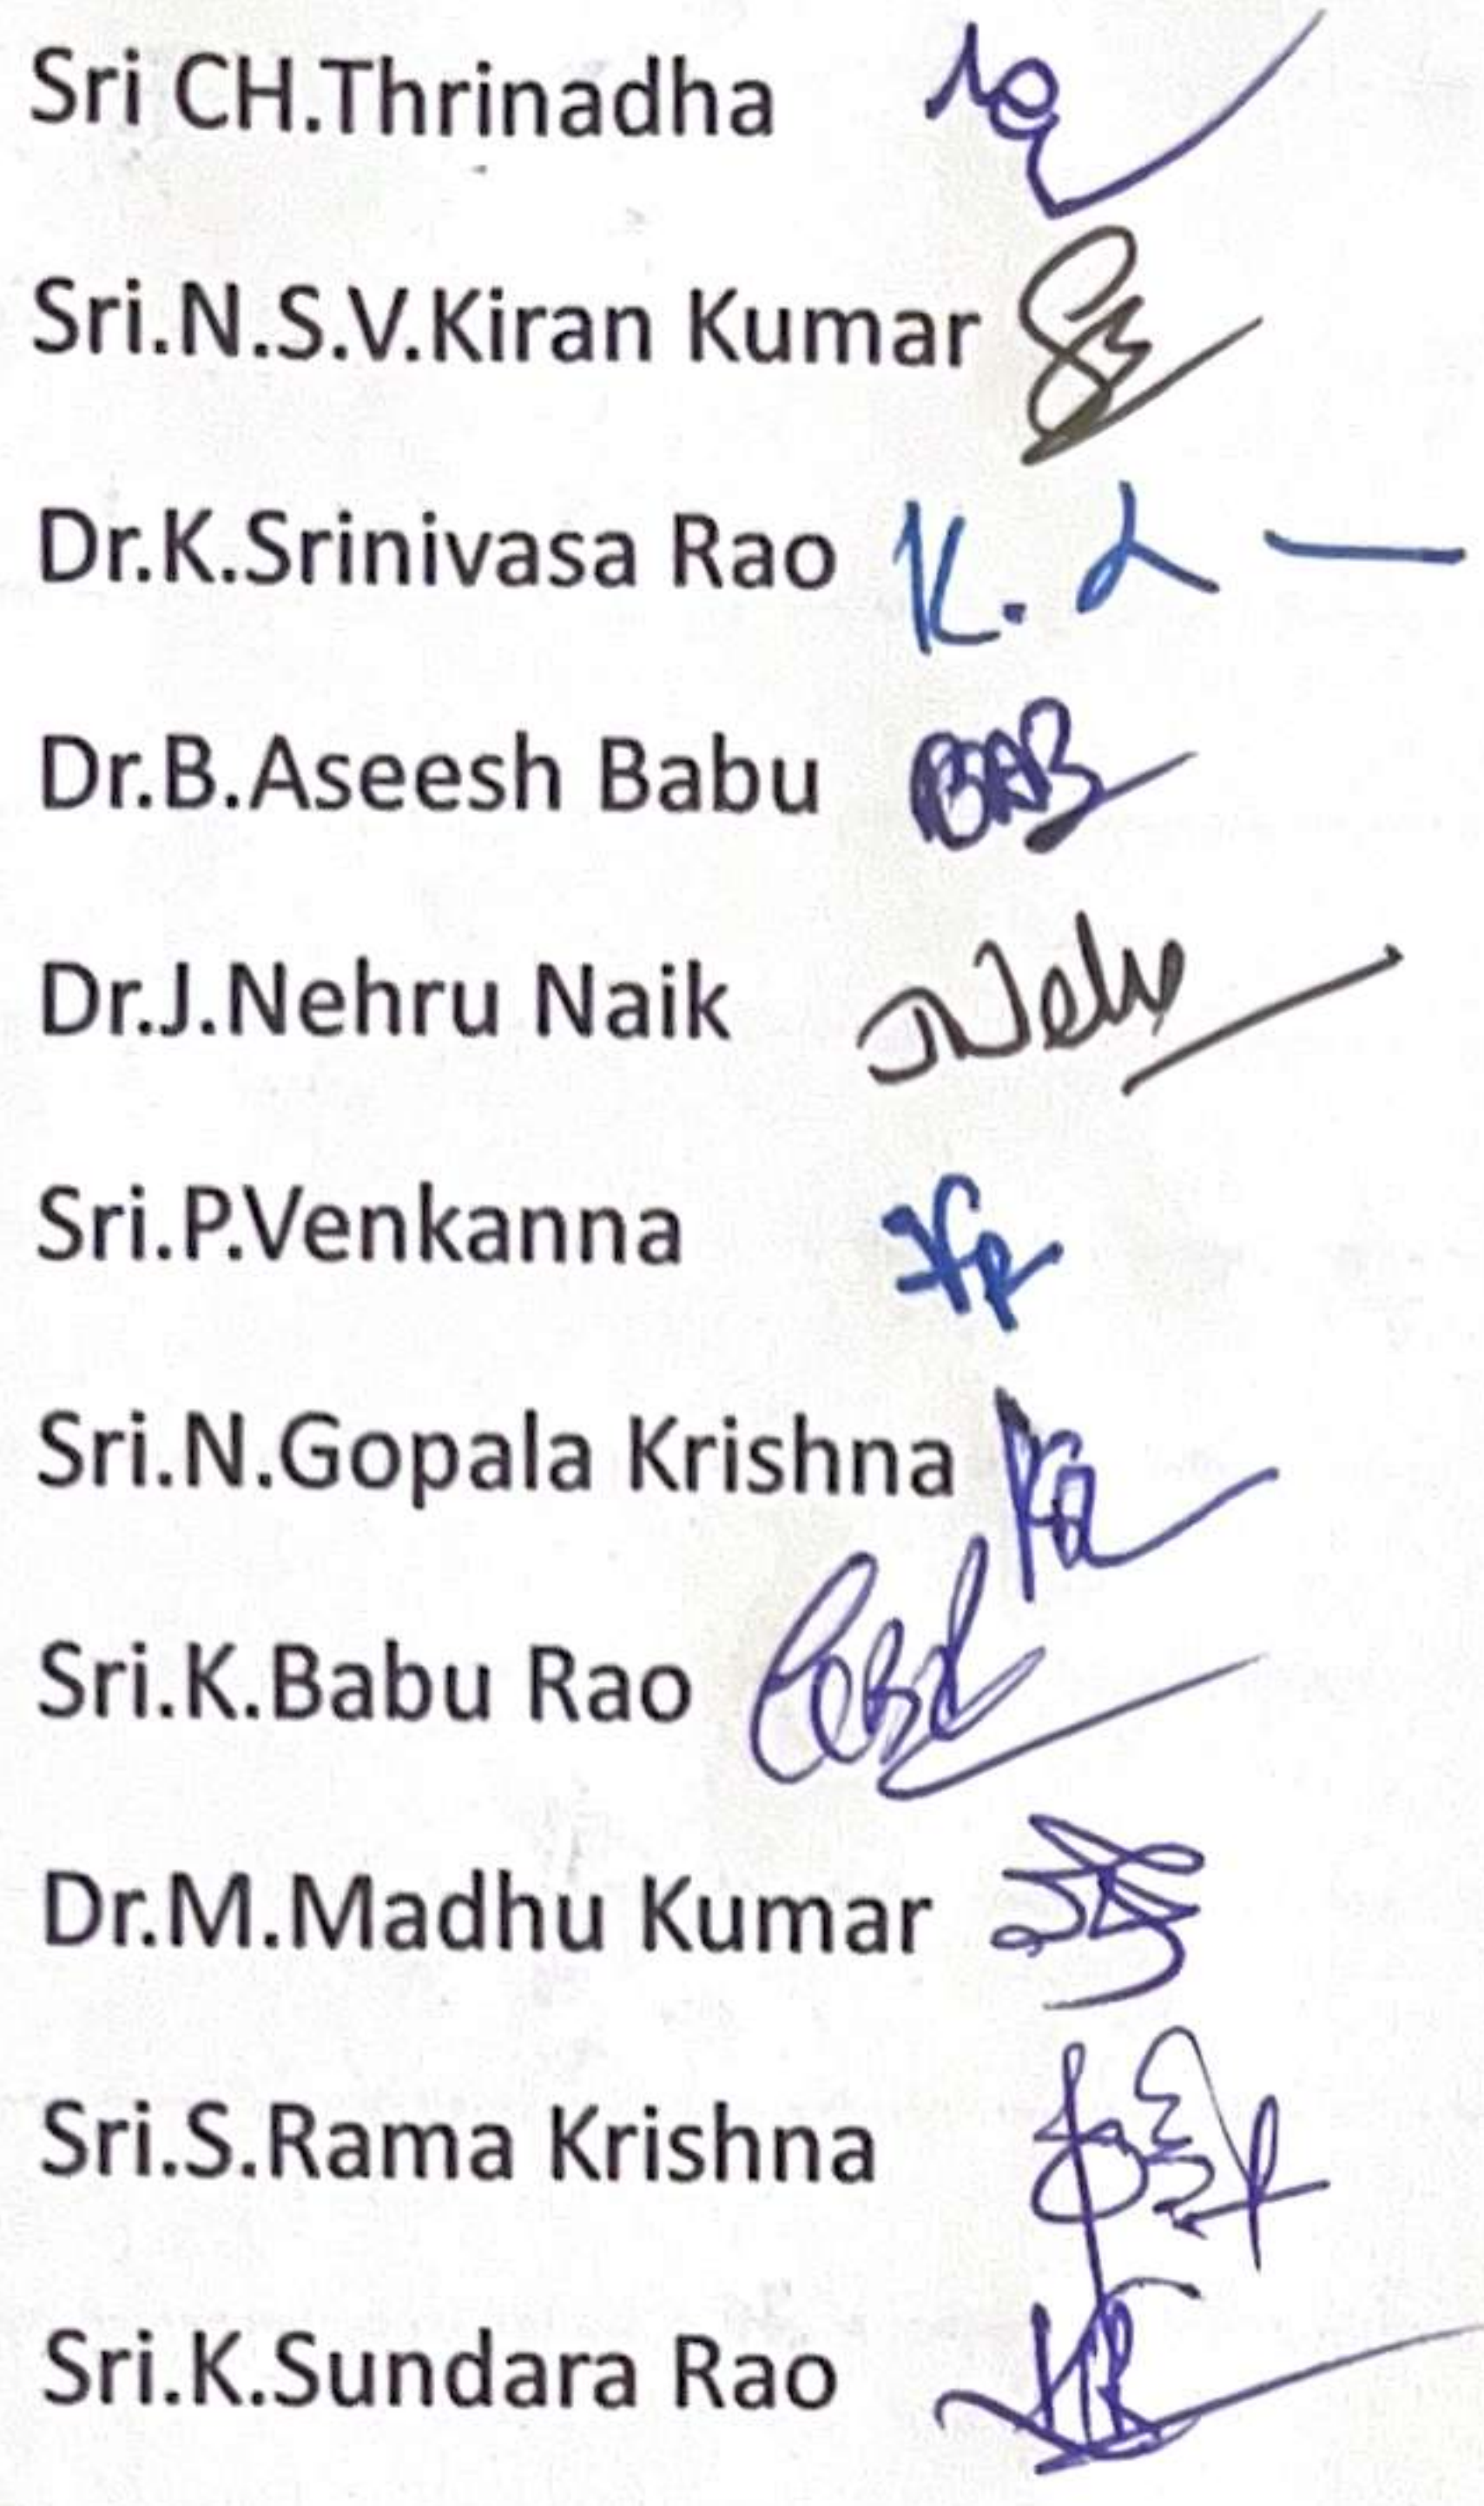 Sri CH.Thrinadha
Sri.N.S.V.Kiran Kumar
Dr.K.Srinivasa Rao K.
Dr.B.Aseesh Babu BAB
Dr.J.Nehru Naik
Sri.P.Venkanna
Sri.N.Gopala Krishna
Sri.K.Babu Rao
Dr.M.Madhu Kumar
Sri.S.Rama Krishna
Sri.K.Sundara Rao